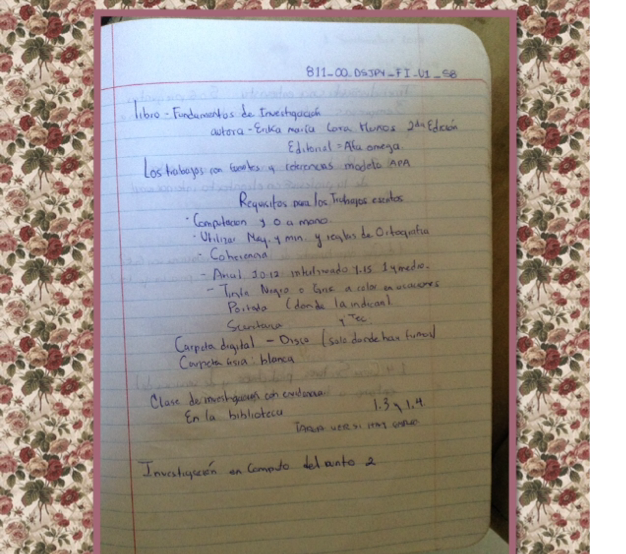 811-00.DSJPV-FI-U1-SB
libro - Fundamentos de Investigación
autora - Erika maría Lara Muños 2da Edición
Editorial = Alfa omega
Los trabajos con fuentes y referencias modelo APA
Requisitos para los Trabajos escritos
- Computacion y O a mano.
- Utilizar May. y min. y reglas de Ortografia
- Coherencia
- Arial 10-12 interlineado 1.15 1 y medio.
- Tinta Negro o Gris a color en ocaciones
Portada (donde la indican)
Secretaria y Tec
Carpeta digital - Disco (solo donde hay firmas)
Carpeta fisia: blanca
Clase de investigacion con
En la biblioteca 1.3 y 1.4
TAREA
Investigación en Computo del punto 2